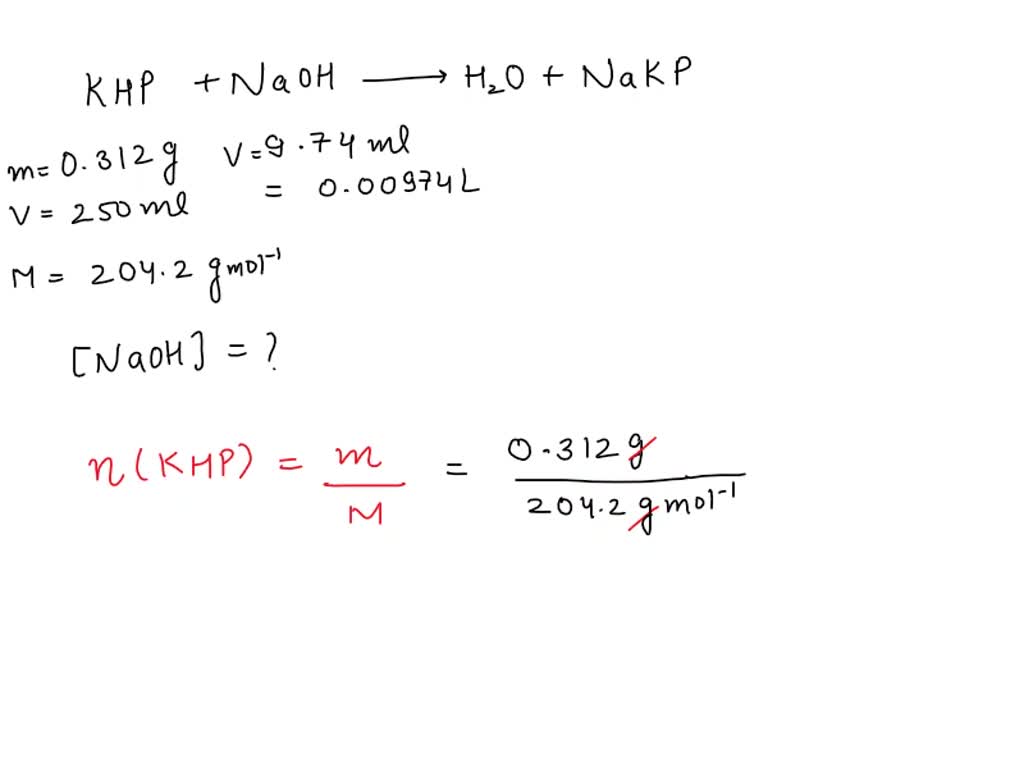 KHP + NaOH ⟶ H₂O + NaKP
m = 0.312 g V = 9.74 ml
V = 250 ml = 0.00974 L
M = 204.2 g mol⁻¹
[NaOH] = ?
n(KHP) = m/M = 0.312 g / 204.2 g mol⁻¹